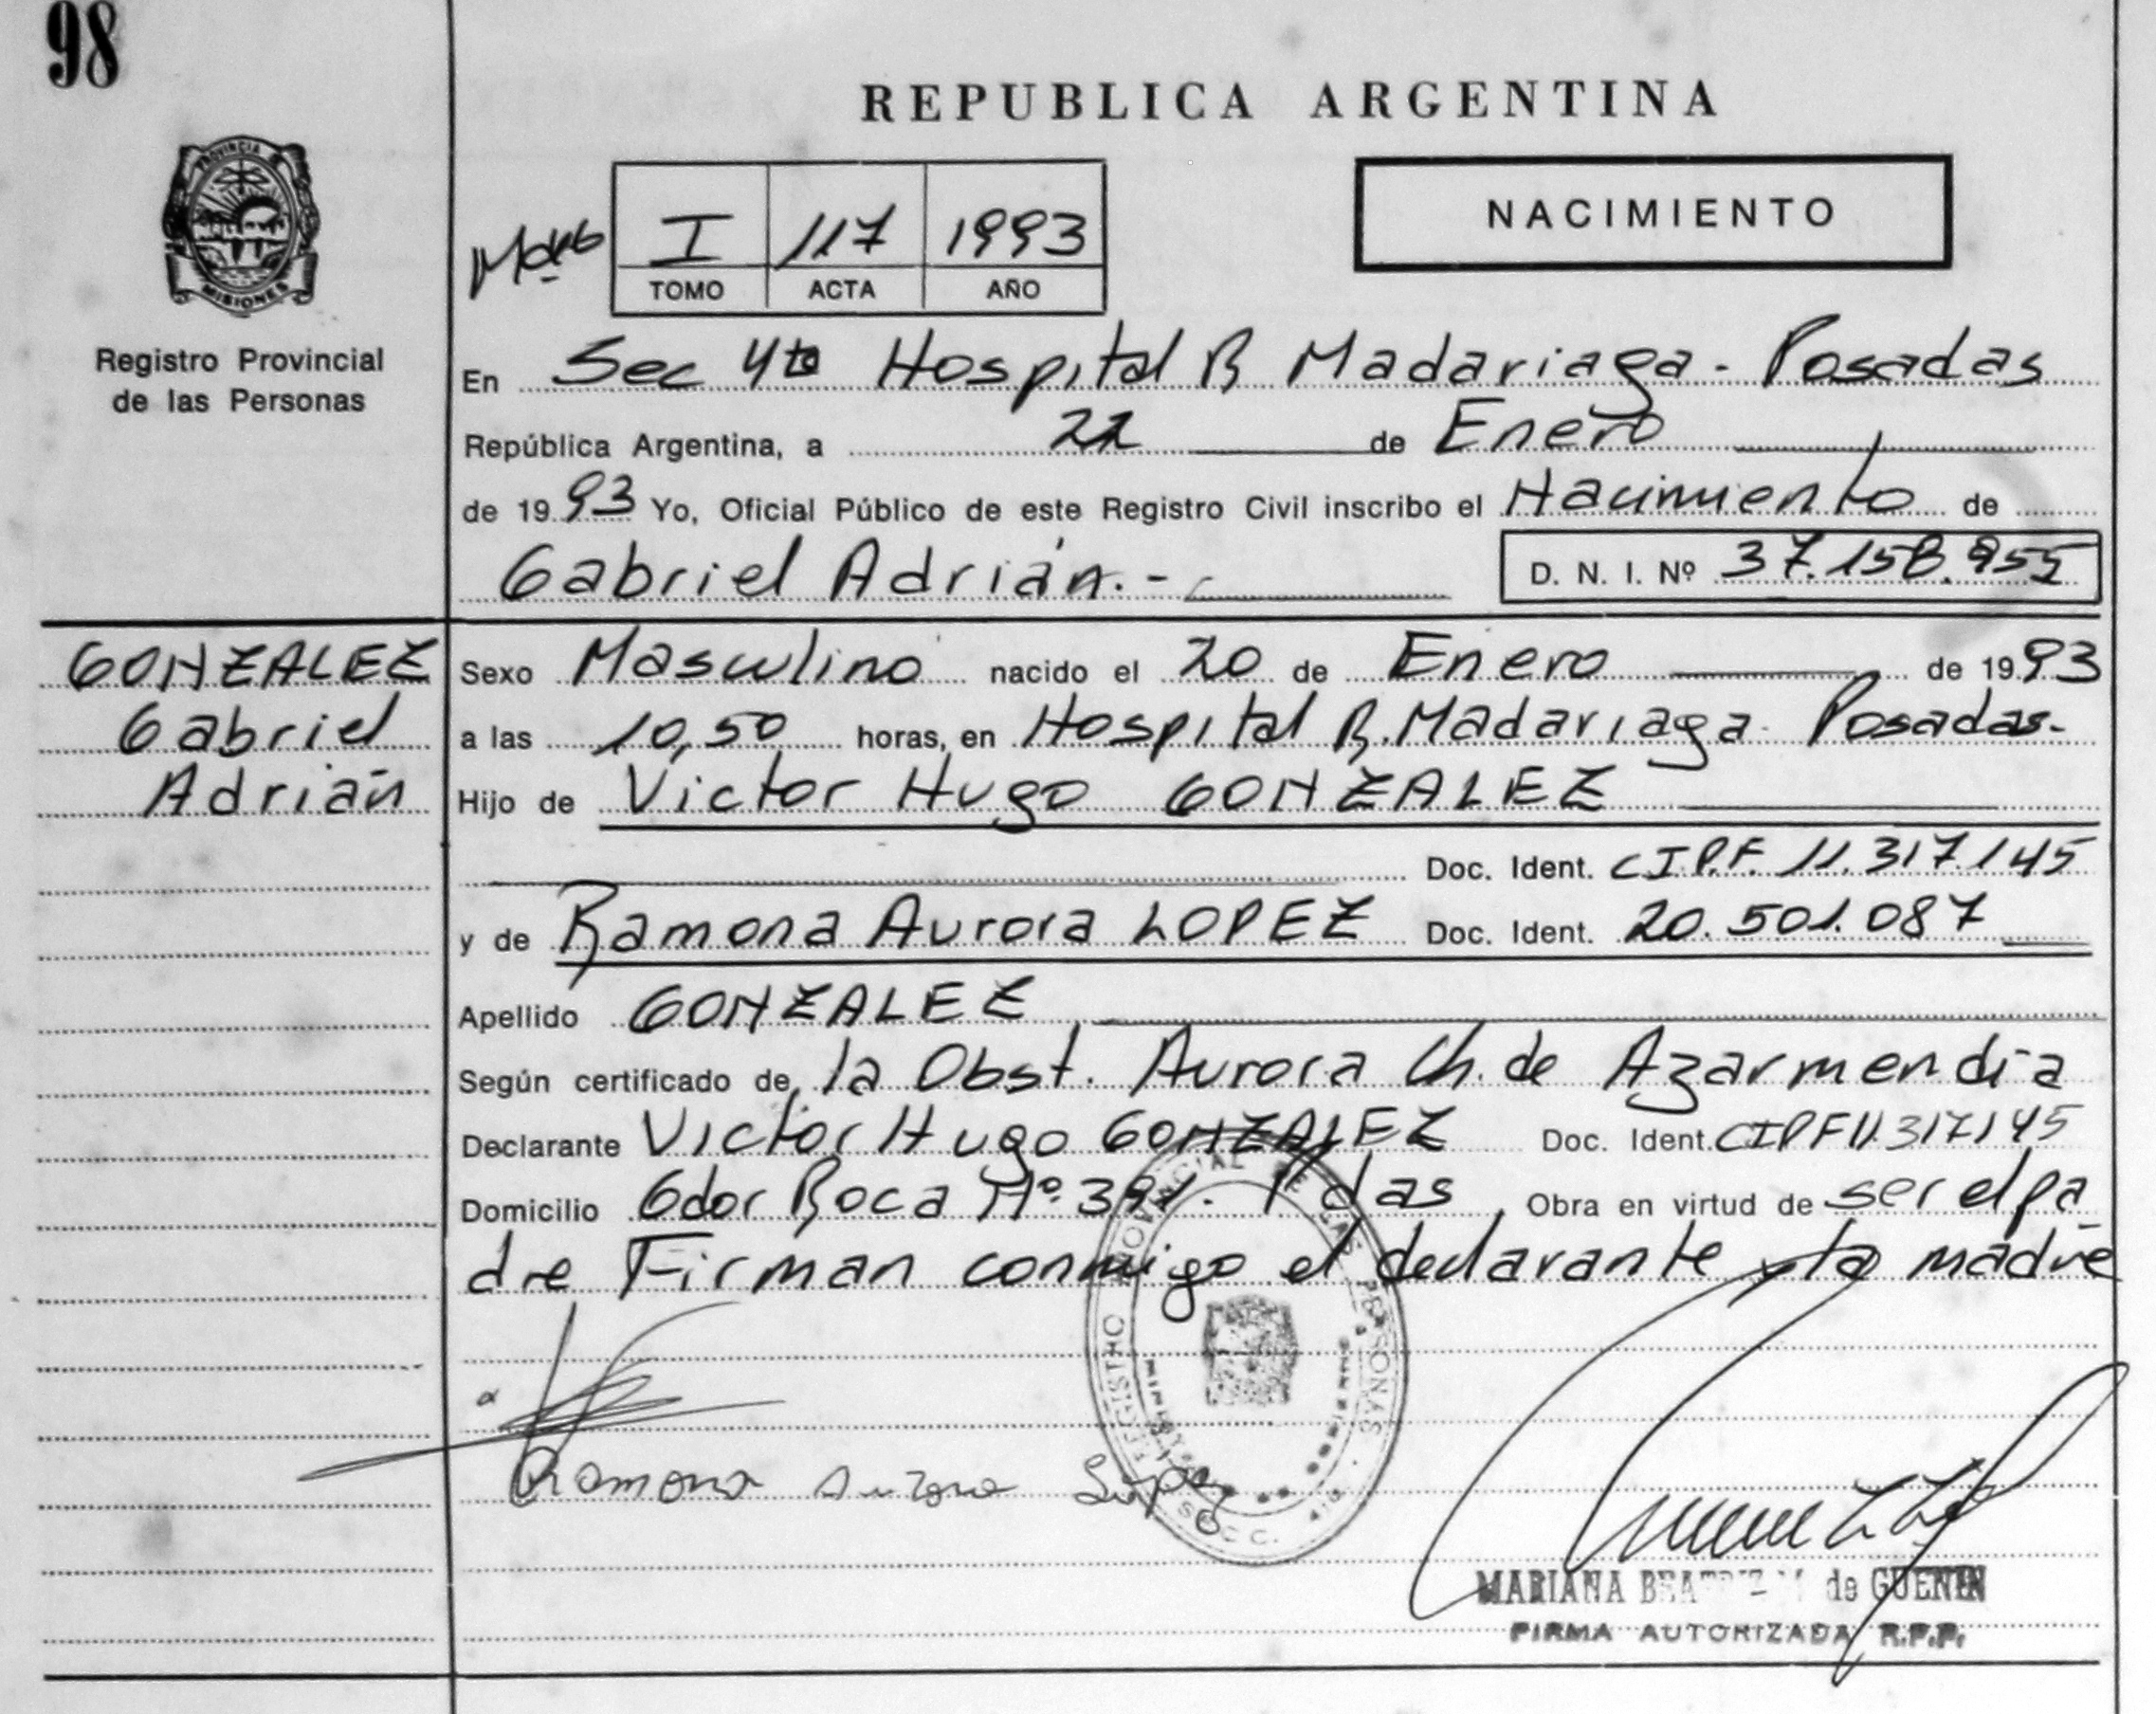 98
REPUBLICA ARGENTINA
PROVINCIA DE
MISIONES
Registro Provincial
de las Personas
I 117 1993
TOMO ACTA AÑO
NACIMIENTO
En Sec 4ta Hospital R Madariaga - Posadas
República Argentina, a de Enero
de 1993 Yo, Oficial Público de este Registro Civil inscribo el Nacimiento de
Gabriel Adrián.-
D. N. I. Nº 37.158.955
GONZALEZ
Gabriel
Adrián
Sexo Masculino nacido el 20 de Enero de 1993
a las 10,50 horas, en Hospital R. Madariaga Posadas-
Hijo de Victor Hugo GONZALEZ
Doc. Ident. CI.P.F. 11.317.145
y de Ramona Aurora LOPEZ Doc. Ident. 20.501.087
Apellido GONZALEZ
Según certificado de la Obst. Aurora Ch. de Azarmendia
Declarante Victor Hugo GONZALEZ Doc. Ident. CIPF 11.317145
Domicilio Gdor Roca Nº Pdas Obra en virtud de ser el pa
dre Firman conmigo el declarante y la madre
REGISTRO PROVINCIAL DE LAS PERSONAS
Ramona Aurora Lopez
MARIANA BEATRIZ de GUENIN
FIRMA AUTORIZADA R.P.P.